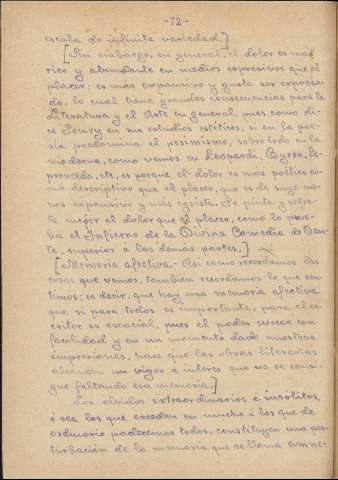 -72-
escala de infinita variedad.]
[Sin embargo, en general, el dolor es más
rico y abundante en medios expresivos que el
placer; es más expansivo y gusta ser expresa-
do, lo cual tiene grandes consecuencias para la
Literatura y el Arte en general, pues, como di-
ce en sus estudios estéticos, si en la poe-
sía predomina el pesimismo, sobre todo en la
moderna, como vemos en Leopardi, Byron, Es-
pronceda, etc, es porque el dolor es más poético co-
mo descriptivo que el placer, que es de suyo me-
nos expansivo y más egoista. Se pinta y retra-
ta mejor el dolor que el placer, como lo prue-
ba el Infierno de la Divina Comedia de Dan-
te, superior á las demás partes.]
[Memoria afectiva.- Asi como recordamos las
cosas que vemos, tambien recordamos lo que sen-
timos; es decir, que hay una memoria afectiva
que si para todos es importante, para el es-
critor es esencial, pues el poder evocar con
facilidad y en un momento dado nuestras
impresiones, hace que las obras literarias
alcancen un vigor é interes que no se consi-
gue faltando esa memoria.]
Los olvidos extraordinarios é insólitos,
ó sea los que exceden en mucho á los que de
ordinario padecemos todos, constituyen una per-
turbación de la memoria que se llama amne-